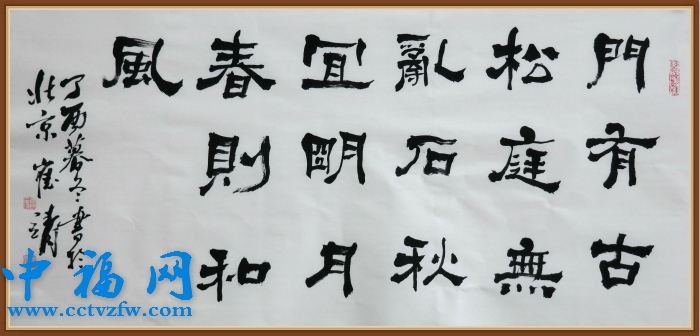 門有古
松庭無
亂石秋
宜明月
春則和
風
丁酉暮冬書於
北京崔靖
中福网
www.cctvzfw.com